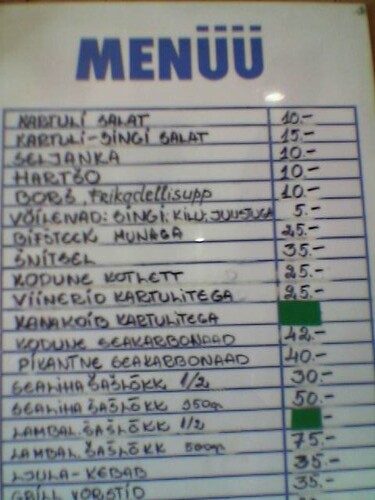 MENÜÜ
KARTULI SALAT 10.-
KARTULI-SINGI SALAT 15.-
SELJANKA 10.-
HARTŠO 10.-
BORŠ, frikadellisupp 10.-
VÕILEIVAD: SINGI, KILU, JUUSTUGA 5.-
BIFSTEEK MUNAGA 25.-
ŠNITSEL 35.-
KODUNE KOTLETT 25.-
VIINERID KARTULITEGA 25.-
KANAKOIB KARTULITEGA
KODUNE SEAKARBONAAD 42.-
PIKANTNE SEAKARBONAAD 40.-
SEALIHA ŠAŠLÕKK 1/2 30.-
SEALIHA ŠAŠLÕKK 350gr 50.-
LAMBAL. ŠAŠLÕKK 1/2 -
LAMBAL. ŠAŠLÕKK 75.-
LJULA-KEBAB 35.-
GRILL VORSTID 35.-